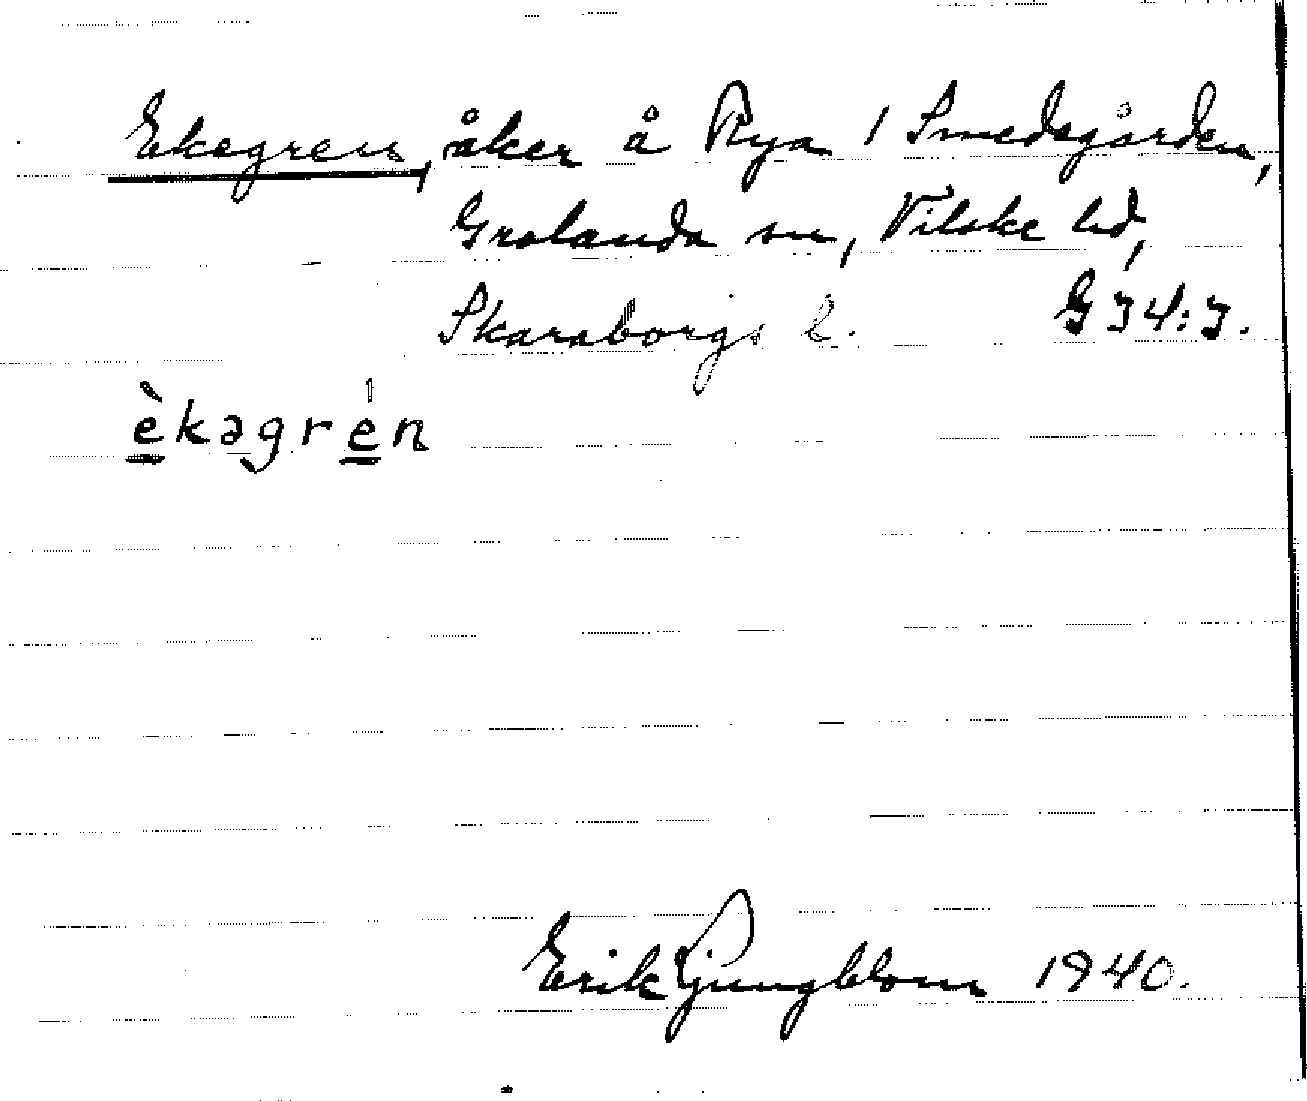 Ekegren, åker å Rya 1 Smedsgården,
Grolanda sn, Vilske hd,
Skaraborgs l. G34:3.
èkəgrén
Erik Ljungblom 1940.